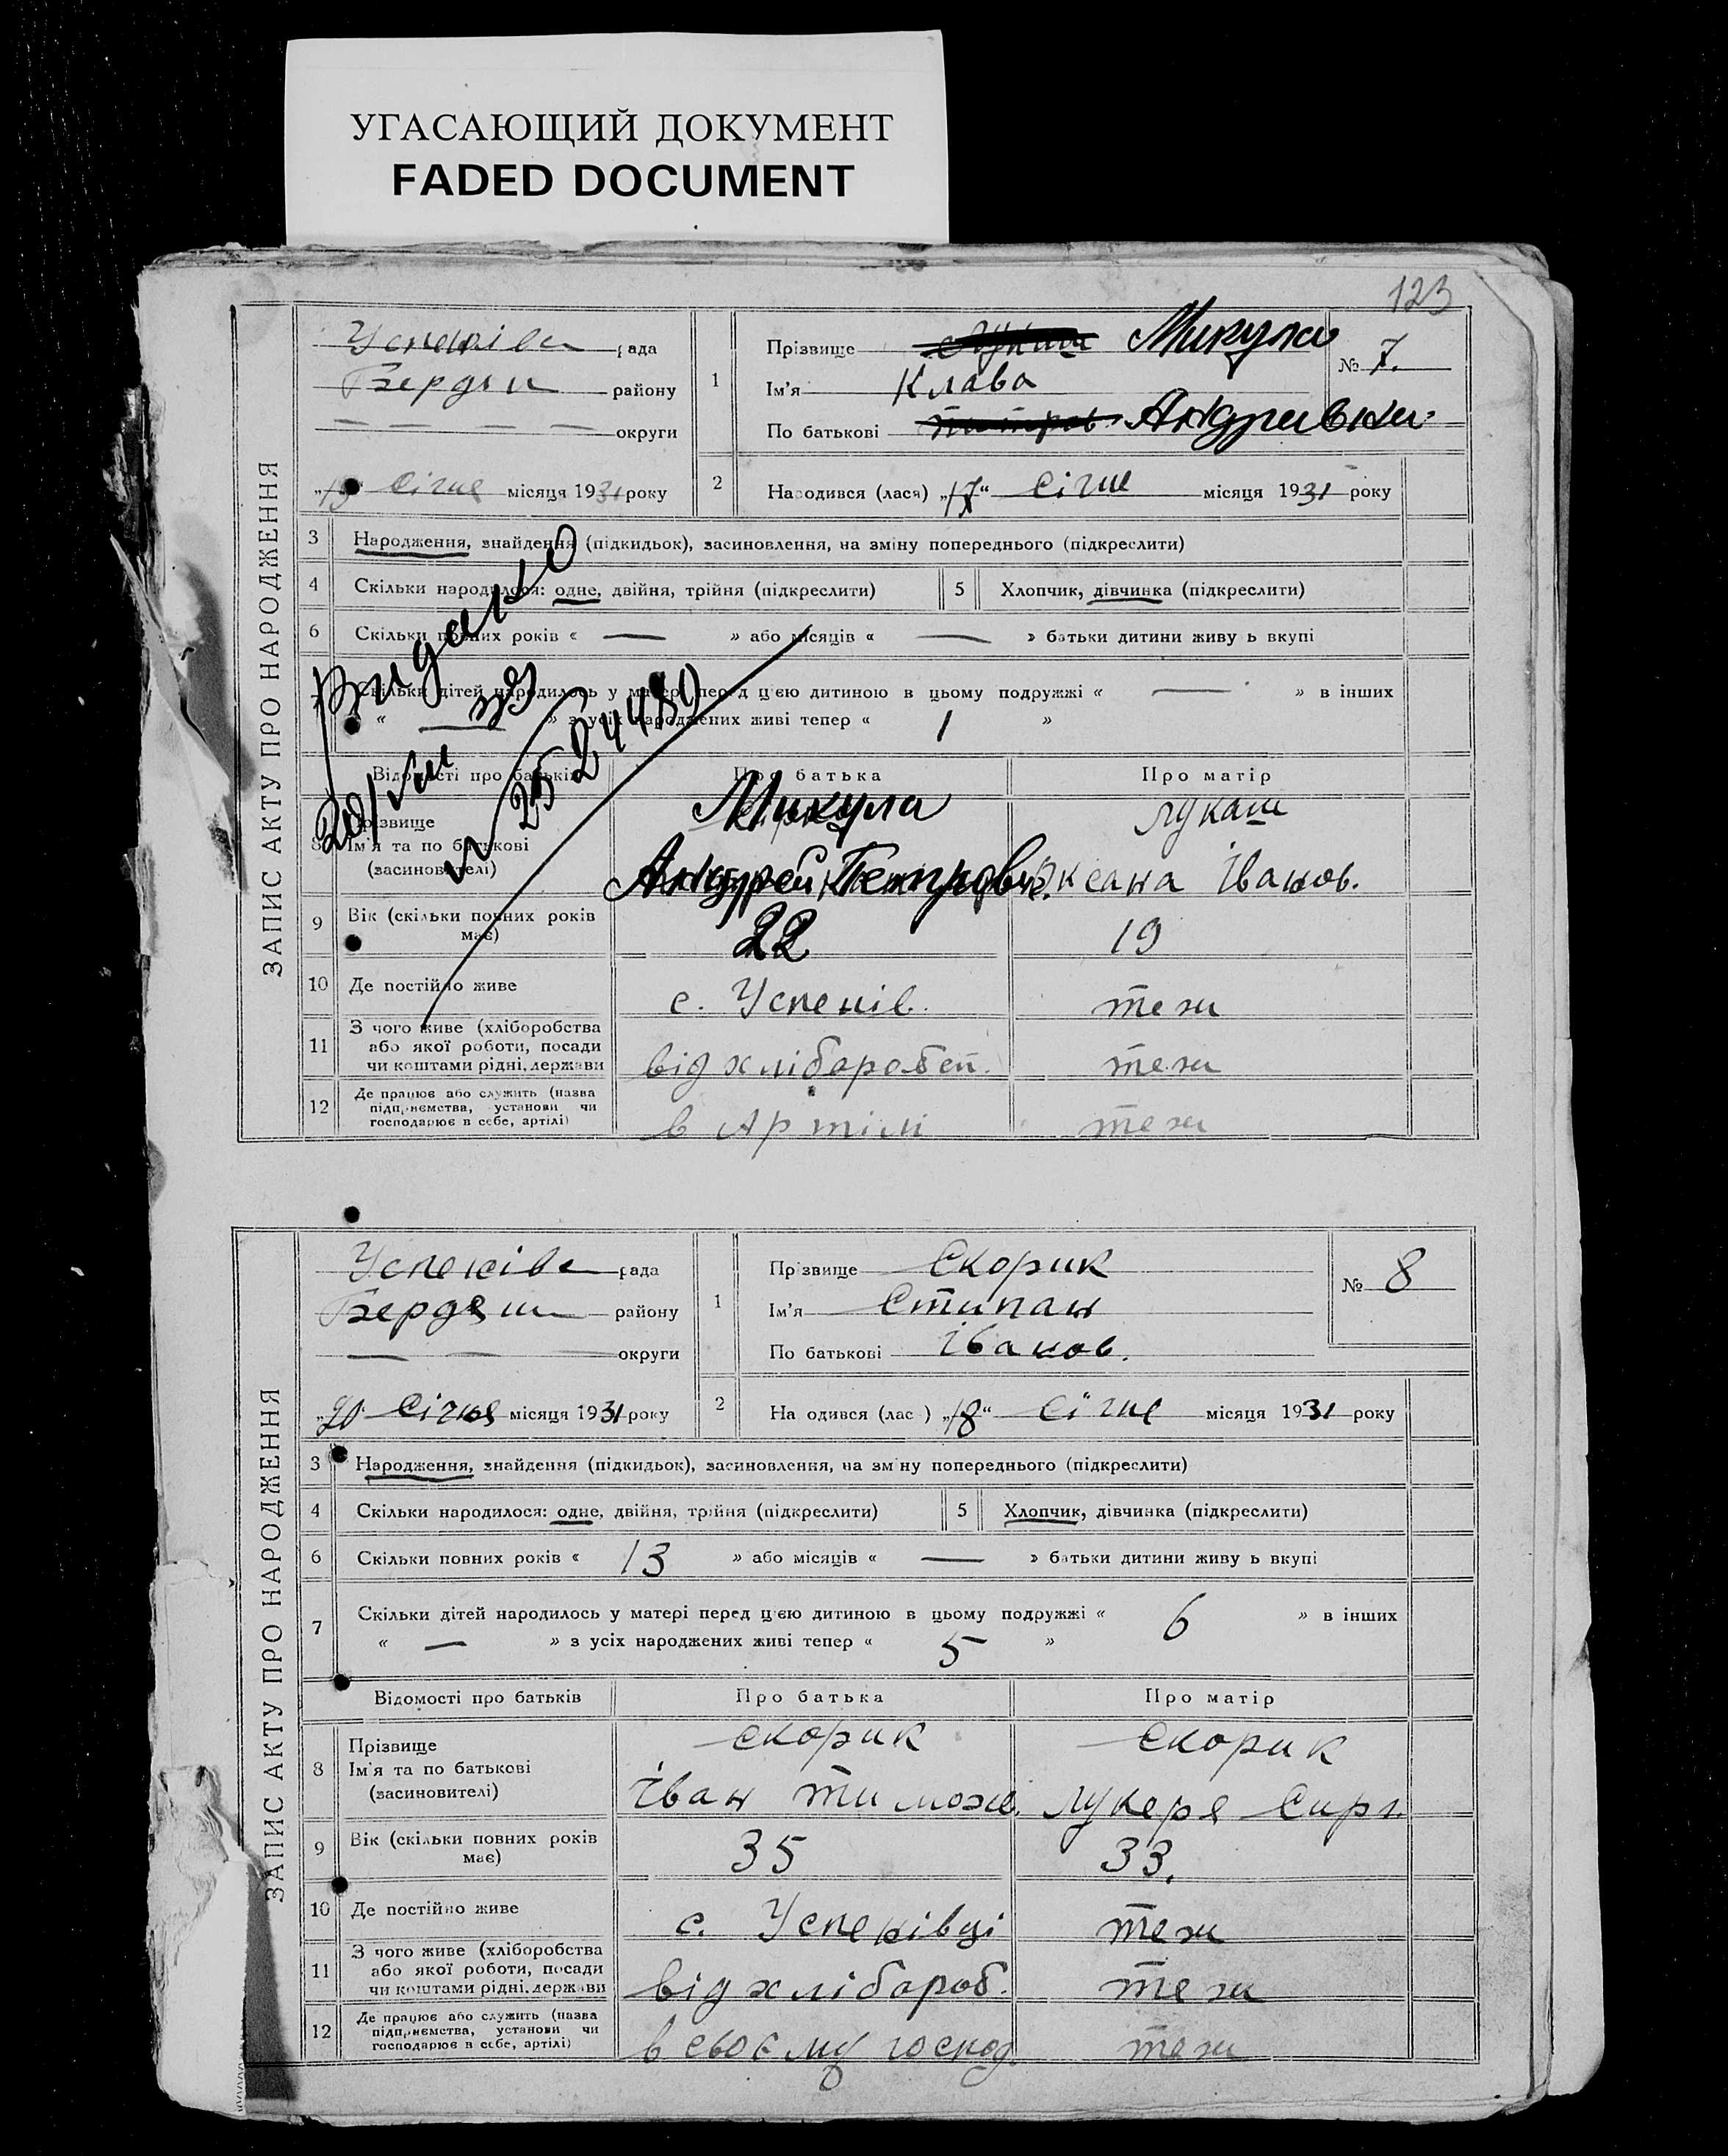 УГАСАЮЩИЙ ДОКУМЕНТ
FADED DOCUMENT
123
ЗАПИС АКТУ ПРО НАРОДЖЕННЯ
Успенівс рада
Бердян району
— — — — округи
„19“ Січня місяця 1931 року
1 Прізвище Лукаш Микула
Ім'я Клава
По батькові Андриівна
№ 7.
2 Народився (лася) „17“ Січня місяця 1931 року
3 Народження, знайдення (підкидьок), засиновлення, на зміну попереднього (підкреслити)
4 Скільки народилося: одне, двійня, трійня (підкреслити) 5 Хлопчик, дівчинка (підкреслити)
6 Скільки повних років « — » або місяців « — » батьки дитини живу ь вкупі
Скільки дітей народилось у матері перед цією дитиною в цьому подружжі « — » в інших
« — » з усіх народжених живі тепер « 1 »
Видано
Відомості про батьків Про батька Про матір
8 Прізвище Микула Лукаш
Ім'я та по батькові Андрей Петрович Оксана Іванов.
(засиновителі)
9 Вік (скільки повних років має) 22 19
10 Де постійно живе с. Успенів. теж
11 З чого живе (хліборобства або якої роботи, посади чи коштами рідні, держави від хліборобст. теж
12 Де працює або служить (назва підприємства, установи чи господарює в себе, артілі) в Артілі теж
ЗАПИС АКТУ ПРО НАРОДЖЕННЯ
Успенівс рада
Бердян району
— — — округи
„20“ Січня місяця 1931 року
1 Прізвище Скорик
Ім'я Стипан
По батькові Іванов.
№ 8
2 На одився (лас ) „18“ Січня місяця 1931 року
3 Народження, знайдення (підкидьок), засиновлення, на зміну попереднього (підкреслити)
4 Скільки народилося: одне, двійня, трійня (підкреслити) 5 Хлопчик, дівчинка (підкреслити)
6 Скільки повних років « 13 » або місяців « — » батьки дитини живу ь вкупі
7 Скільки дітей народилось у матері перед цією дитиною в цьому подружжі « 6 » в інших
« — » з усіх народжених живі тепер « 5 »
Відомості про батьків Про батька Про матір
8 Прізвище Скорик Скорик
Ім'я та по батькові Іван Тимохв. Лукеря Сирг.
(засиновителі)
9 Вік (скільки повних років має) 35 33.
10 Де постійно живе с. Успенівці теж
11 З чого живе (хліборобства або якої роботи, посади чи коштами рідні, держави від хлібороб. теж
12 Де працює або служить (назва підприємства, установи чи господарює в себе, артілі) в своєму господ. теж